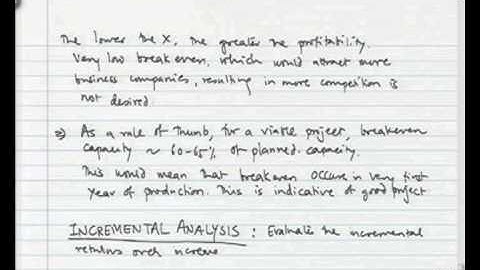 The lower the X, the greater the profitability.
Very low breakeven, which would attract more
business companies, resulting in more competition is
not desired.
2) As a rule of thumb, for a viable project, breakeven
capacity ~ 60-65% of planned capacity.
This would mean that breakeven occurs in very first
year of production. This is indicative of good project
INCREMENTAL ANALYSIS : Evaluates the incremental
returns over increase